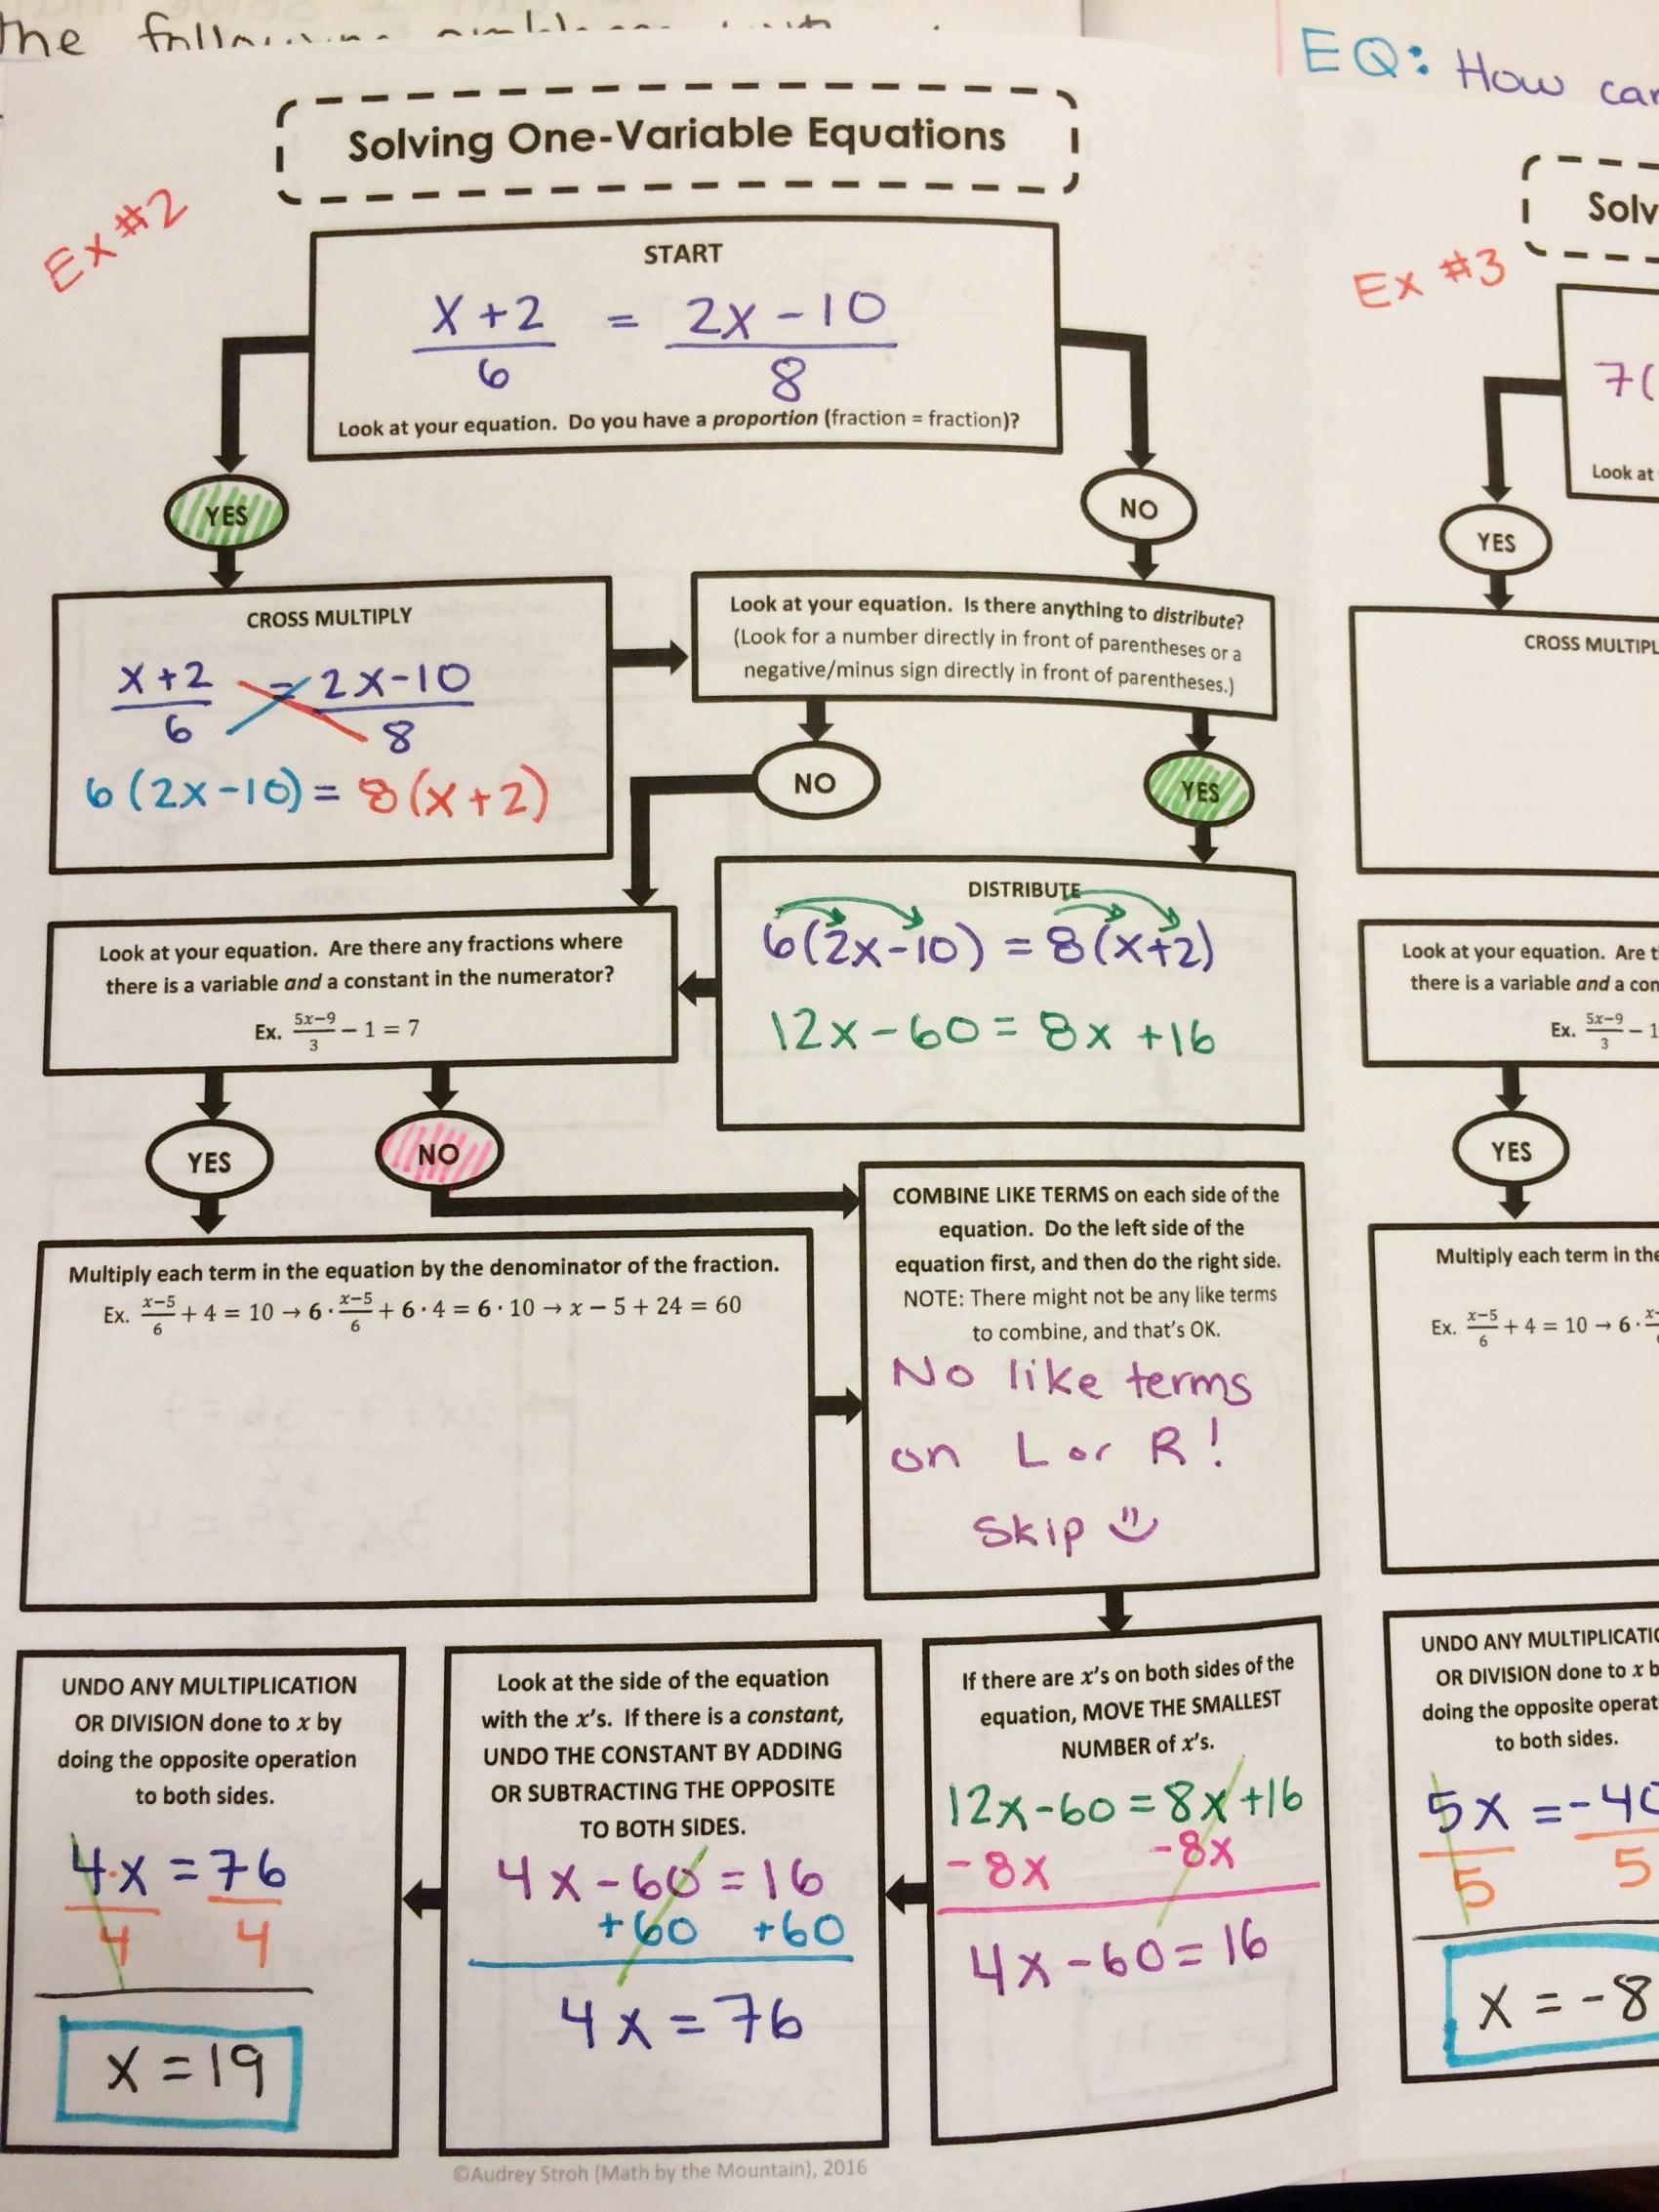 the
EQ: How
Solving One-Variable Equations
Ex #2
START
x+2 = 2x-10
6 8
Look at your equation. Do you have a proportion (fraction = fraction)?
YES
NO
CROSS MULTIPLY
x+2 = 2x-10
6 8
6(2x-10) = 8(x+2)
Look at your equation. Is there anything to distribute?
(Look for a number directly in front of parentheses or a
negative/minus sign directly in front of parentheses.)
NO
YES
DISTRIBUTE
6(2x-10) = 8(x+2)
12x-60 = 8x +16
Look at your equation. Are there any fractions where
there is a variable and a constant in the numerator?
Ex. 5x−9/3 − 1 = 7
YES
NO
Multiply each term in the equation by the denominator of the fraction.
Ex. x−5/6 + 4 = 10 → 6 · x−5/6 + 6 · 4 = 6 · 10 → x − 5 + 24 = 60
COMBINE LIKE TERMS on each side of the
equation. Do the left side of the
equation first, and then do the right side.
NOTE: There might not be any like terms
to combine, and that's OK.
No like terms
on L or R!
Skip
If there are x's on both sides of the
equation, MOVE THE SMALLEST
NUMBER of x's.
12x-60 = 8x+16
-8x -8x
4x-60 = 16
Look at the side of the equation
with the x's. If there is a constant,
UNDO THE CONSTANT BY ADDING
OR SUBTRACTING THE OPPOSITE
TO BOTH SIDES.
4x-60 = 16
+60 +60
4x = 76
UNDO ANY MULTIPLICATION
OR DIVISION done to x by
doing the opposite operation
to both sides.
4·x = 76
4 4
x = 19
©Audrey Stroh (Math by the Mountain), 2016
Solv
Ex #3
7(
Look at
YES
CROSS MULTIPL
Look at your equation. Are t
there is a variable and a con
Ex. 5x−9/3 − 1
YES
Multiply each term in the
Ex. x−5/6 + 4 = 10 → 6 ·
UNDO ANY MULTIPLICATIO
OR DIVISION done to x b
doing the opposite operat
to both sides.
5x = -40
5 5
x = -8